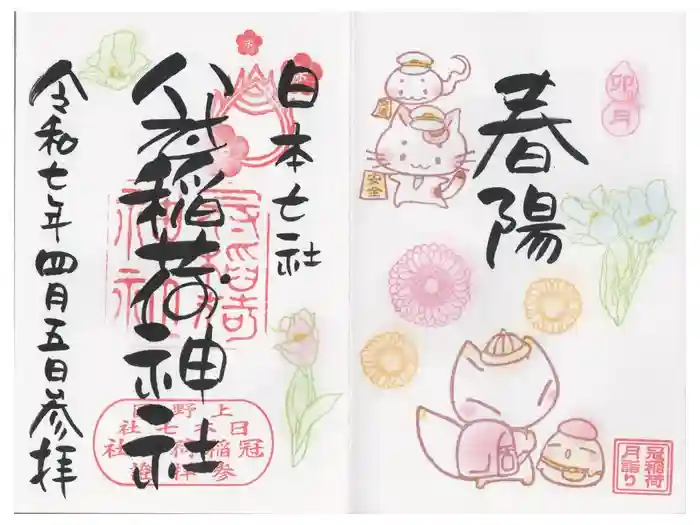 卯月
春陽
安全
冠稲荷
月詣り
日本七社
冠稲荷神社
令和七年四月五日参拝
上野国
日本七社
冠稲荷神社
参拝證